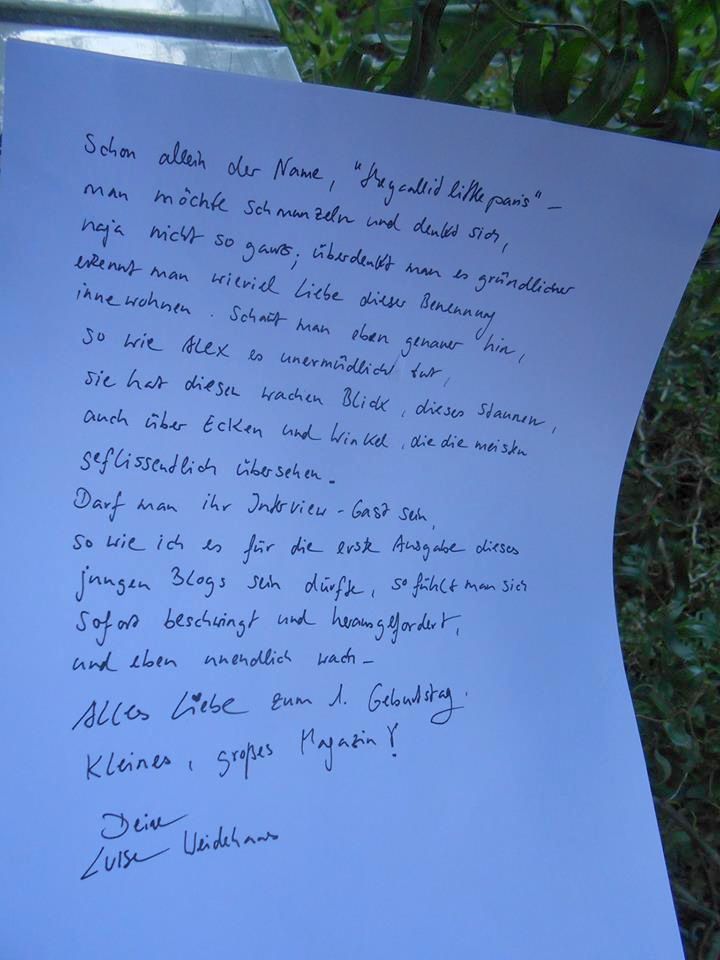 Schon allein der Name, "theycallitlittleparis" –
man möchte schmunzeln und denkt sich,
naja nicht so ganz; überdenkt man es gründlicher
erkennt man wieviel Liebe dieser Benennung
innewohnen. Schaut man eben genauer hin,
so wie Alex es unermüdlich tut,
sie hat diesen wachen Blick, dieses Staunen,
auch über Ecken und Winkel, die die meisten
geflissendlich übersehen.
Darf man ihr Interview-Gast sein,
so wie ich es für die erste Ausgabe dieses
jungen Blogs sein durfte, so fühlt man sich
sofort beschwingt und herausgefordert,
und eben unendlich wach –
Alles Liebe zum 1. Geburtstag.
Kleines, großes Magazin!
Deine
Luise